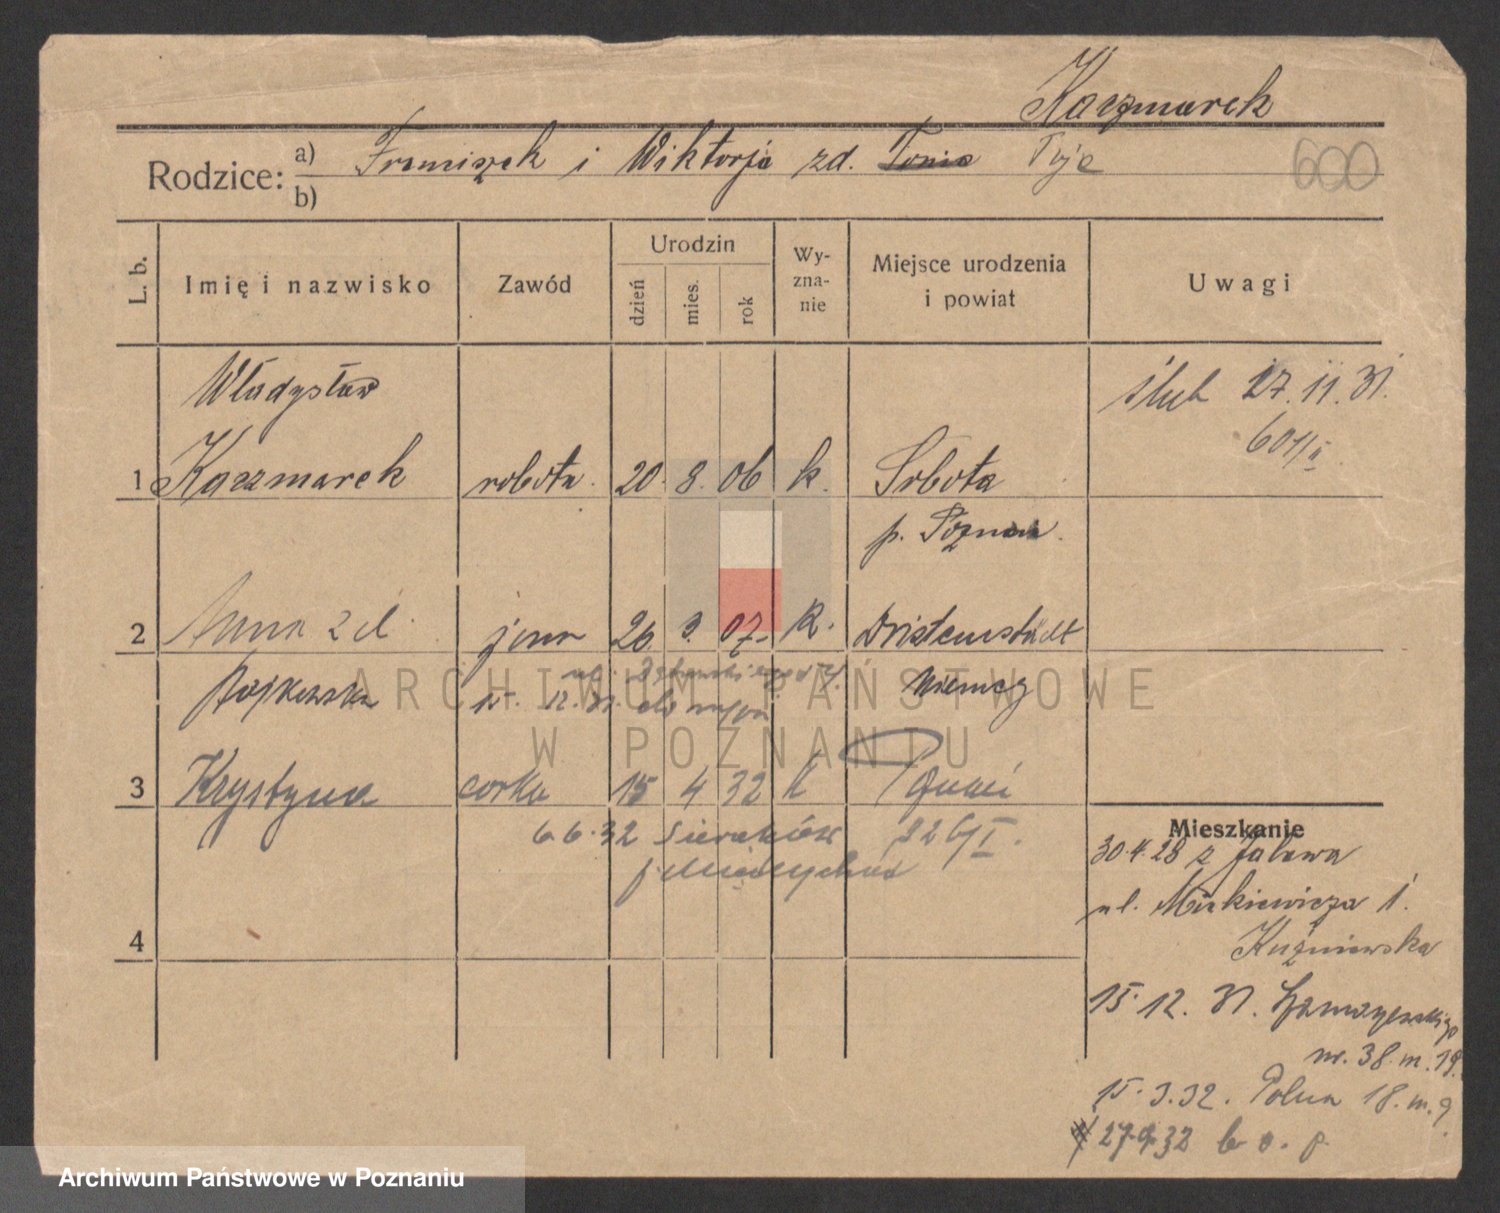 Kaczmarek
Rodzice: a) Franciszek i Wiktorja zd. Tonia Pyja
b)
600
L. b.
Imię i nazwisko
Zawód
Urodzin
dzień
mies.
rok
Wy-
zna-
nie
Miejsce urodzenia
i powiat
Uwagi
Władysław
ślub 27. 11. 31.
601/II
1 Kaczmarek robotn. 20. 8. 06 k. Sobota
p. Poznań.
2 Anna zd. żona 26. 3. 07. k. Dristenstädt
Niemcy
15. 12. 31.
3 Krystyna córka 15 4 32 k Poznań
6.6.32 Sieraków 226/I.
4
Mieszkanie
30.4.28 z
ul. Mickiewicza 1.
Kuźniewska
15. 12. 31.
nr. 38. m. 19.
15. 3. 32. Polna 18. m. 9
27.9.32
ARCHIWUM PAŃSTWOWE
W POZNANIU
Archiwum Państwowe w Poznaniu